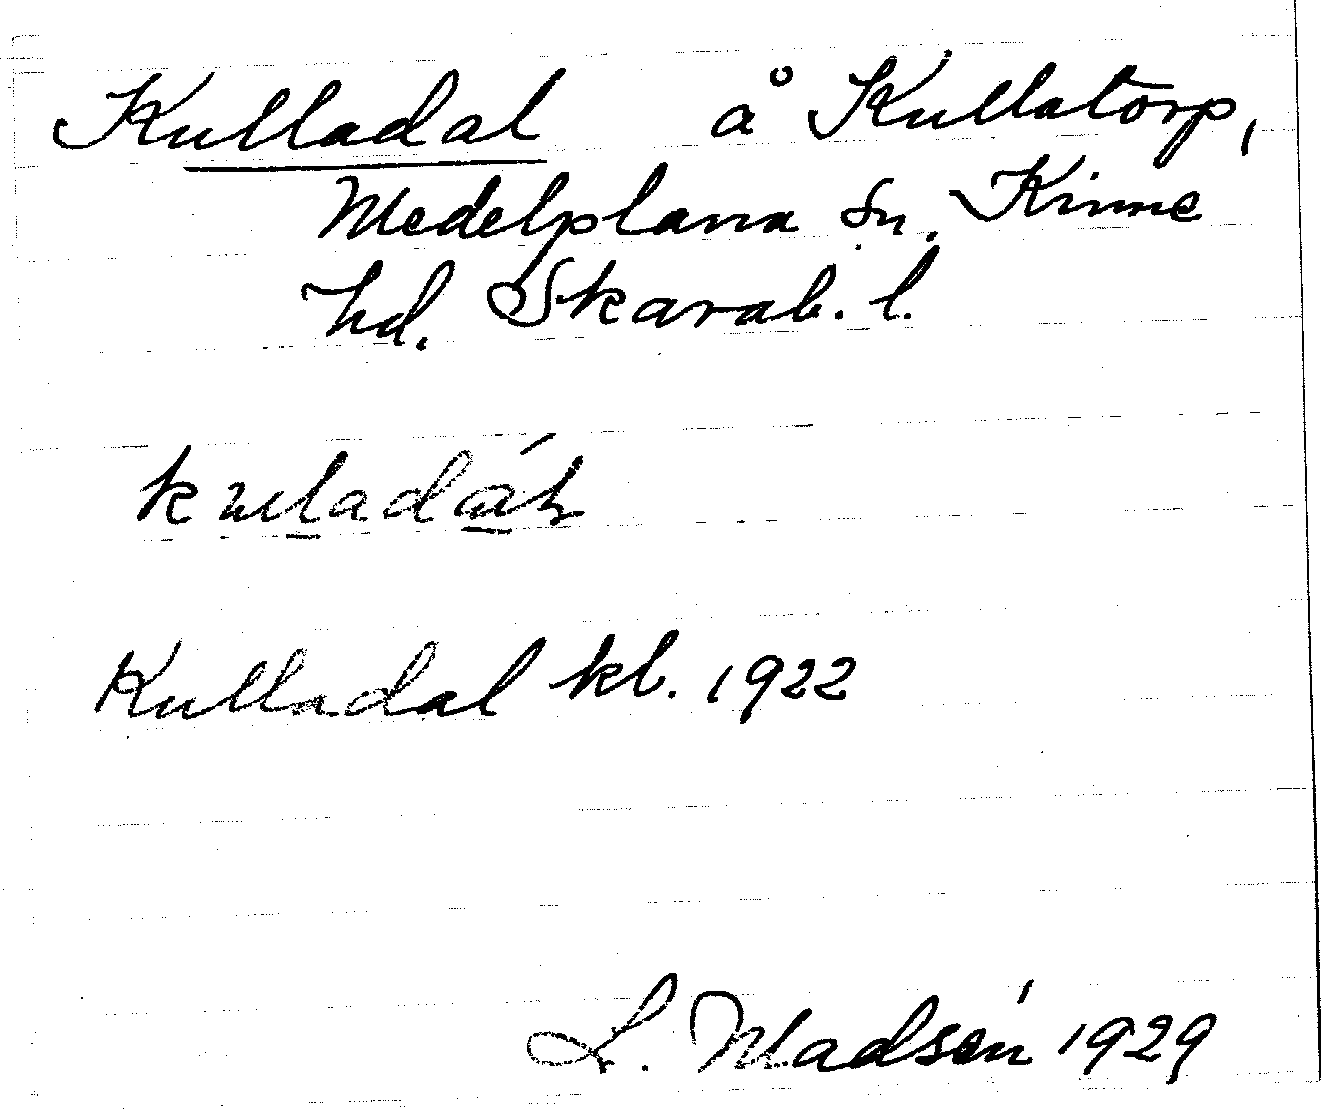 Kulladal å Kullatorp,
Medelplana sn. Kinne
hd. Skarab. l.
Kulladal kl. 1922
L. Madsén 1929